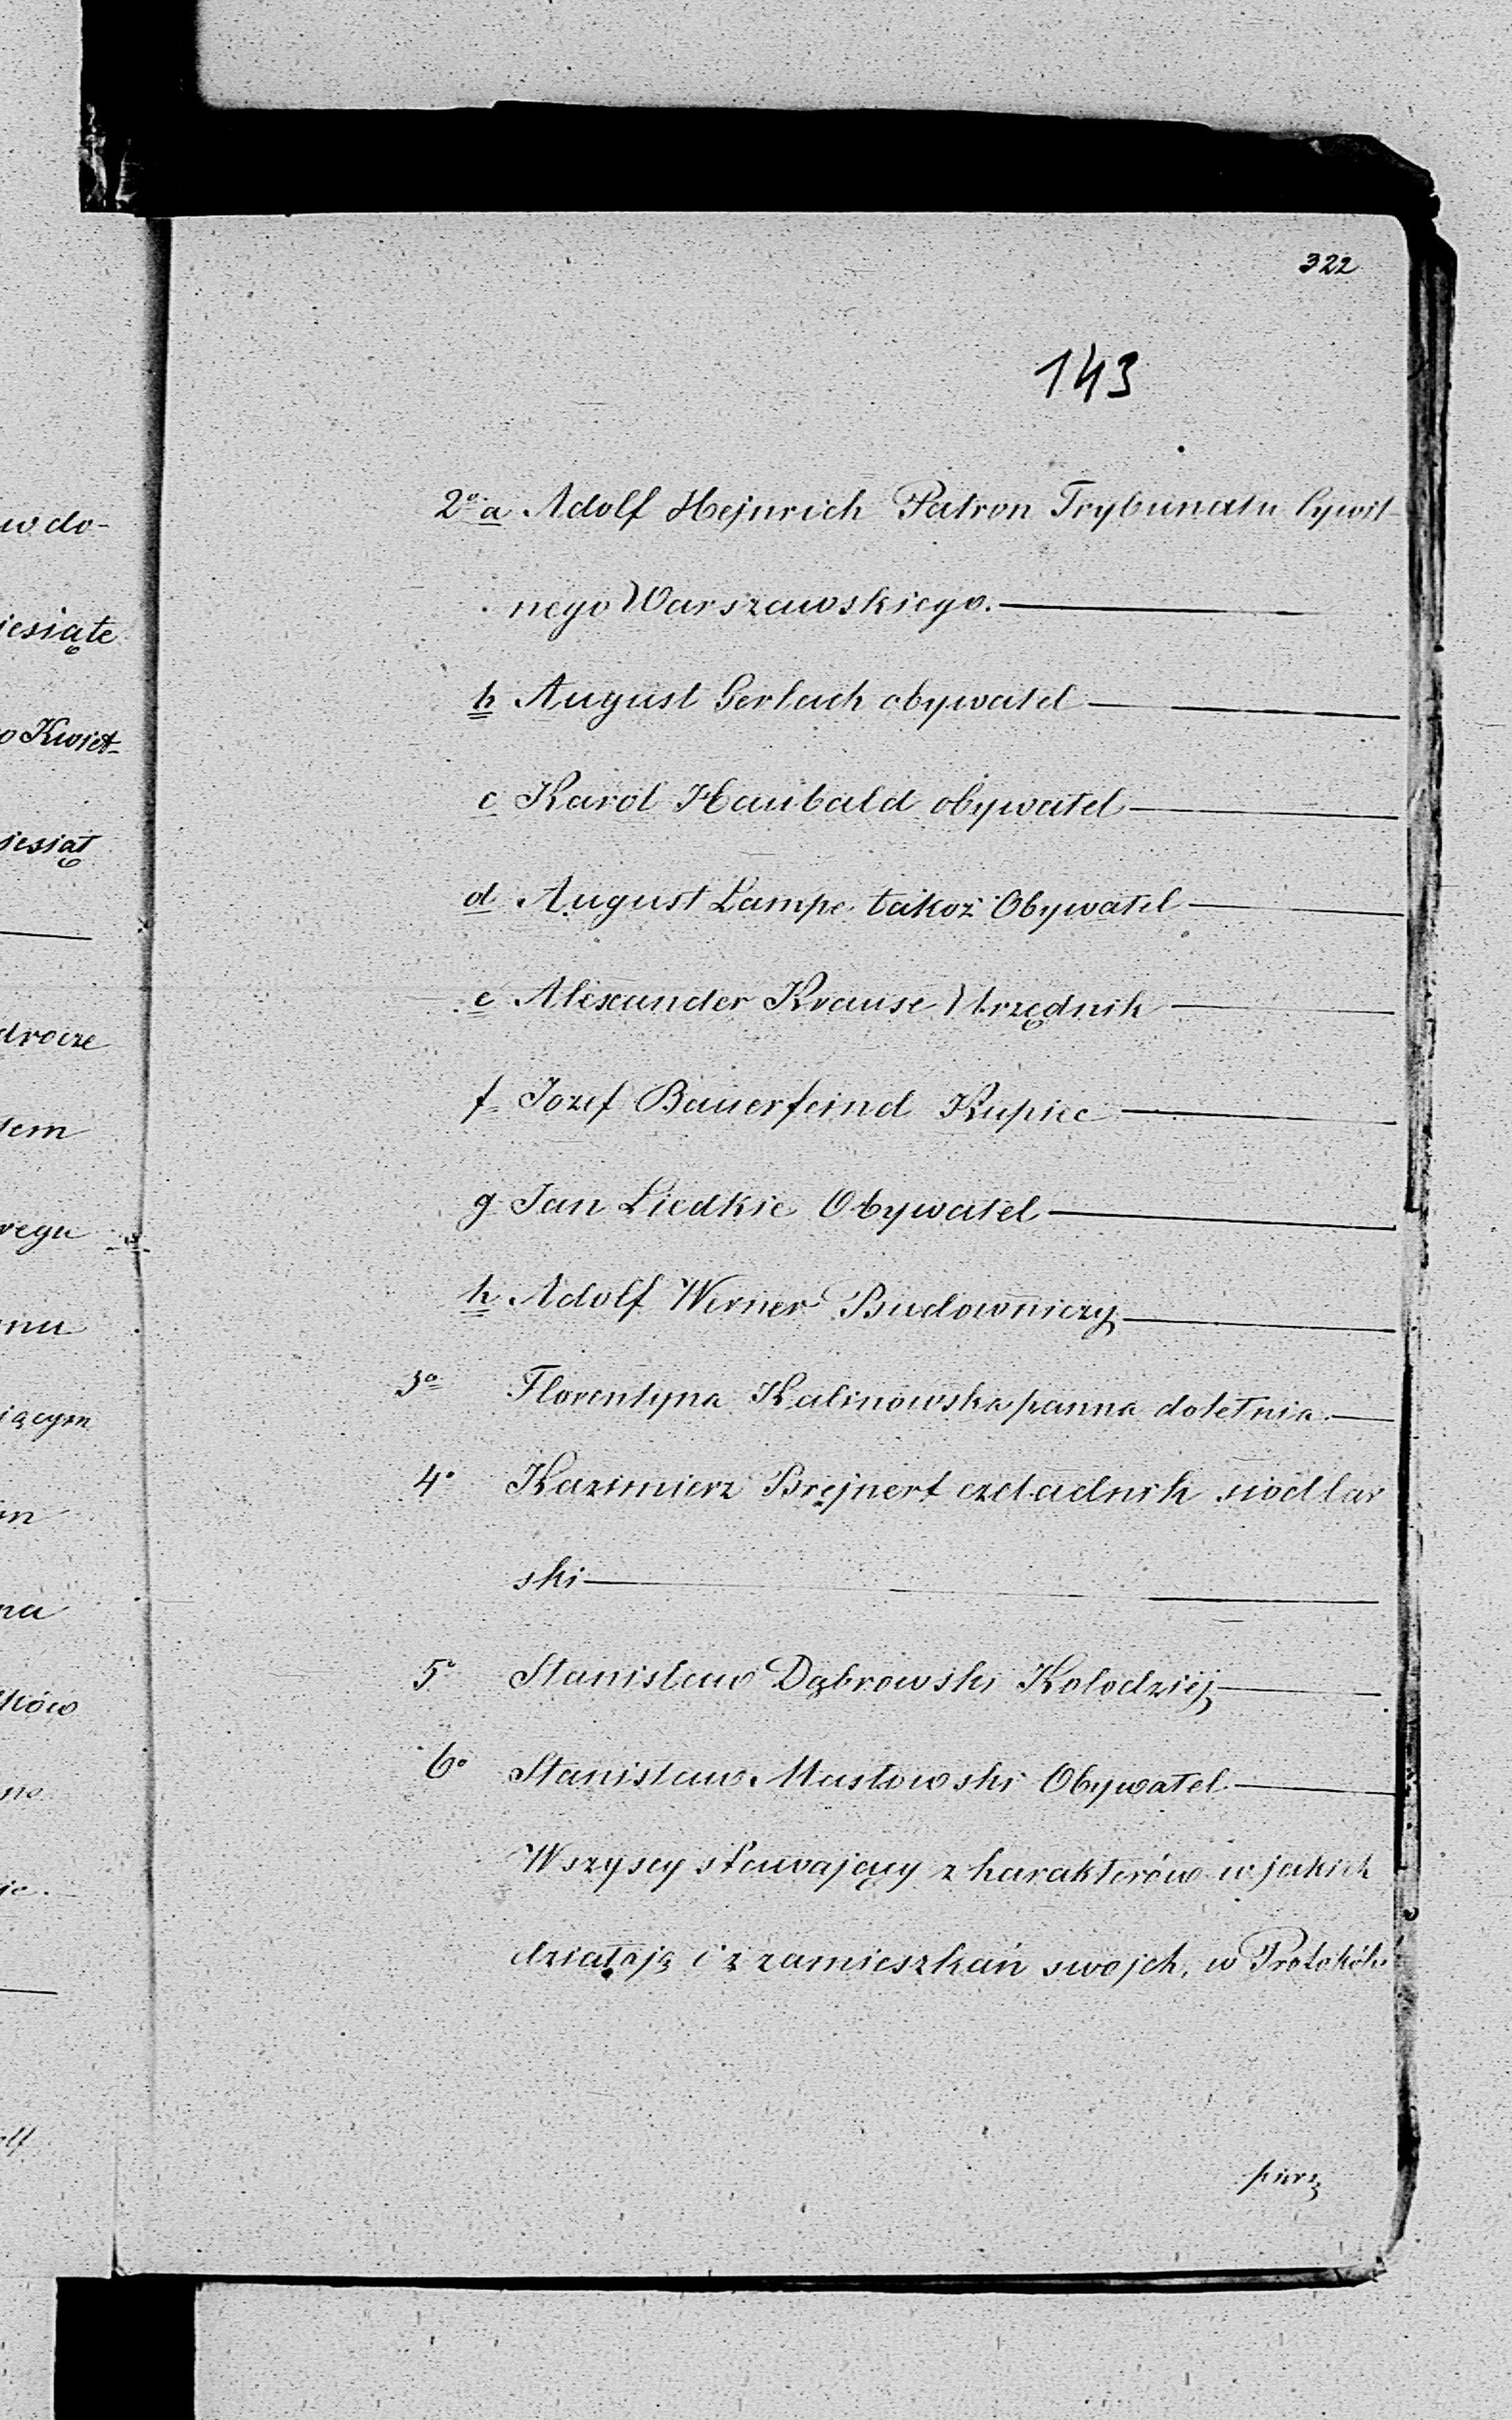 w do-
iesiąte
o Kwiet-
iesiąt
drocze
tem
nu
iącym
na
ików
no
je.
322
143
2o a Adolf Hejnrich Patron Trybunatu Cywil-
nego Warszawskiego.
b August Gerlach obywatel
c Karol Haubald obywatel
d August Lampe takoż Obywatel
e Alexander Krause Urzędnik
f Jozef Bauerfeind Kupiec
g Jan Liedkie Obywatel
h Adolf Werner Budowniczy
3o Florentyna Kalinowska panna doletnia.
4o Kazimierz Brejnert czeladnik siodlar
ski
5o Stanisław Dąbrowski Kolodziej
6o Stanisław Masłowski Obywatel
Wszyscy stawający z harakterów w jakich
działają i z zamieszkań swojch, w Protokóle